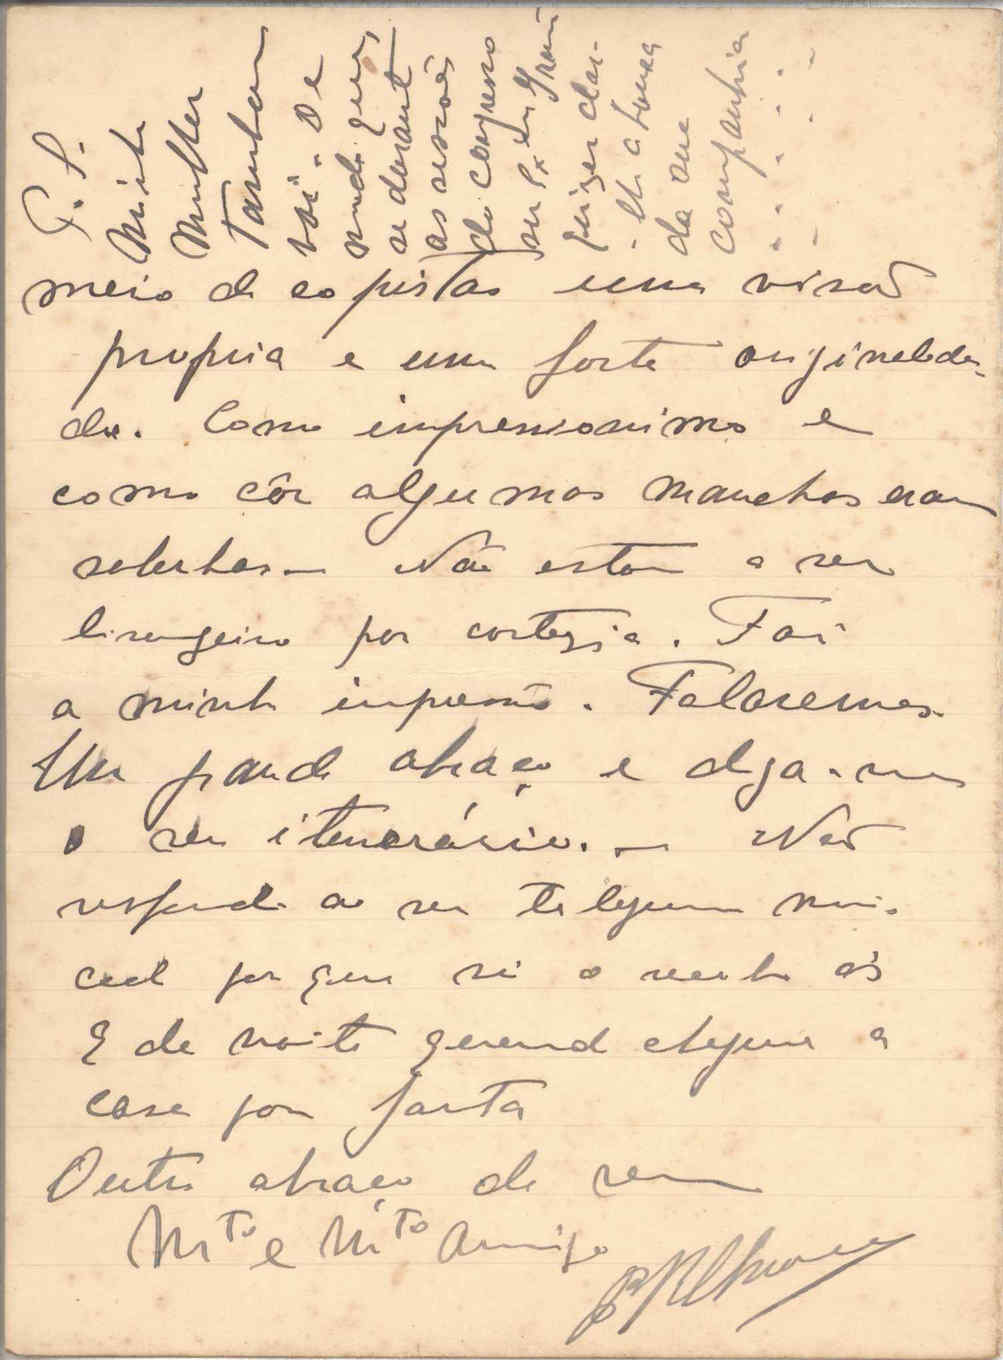 P. S.
Minha
Mulher
Tambem
vai. De
modo que,
se durant
as sessões
do congresso
sua Exª
quizer dar-
-lhe a honra
da sua
companhia
meio de copistas uma visão
propria e uma forte originalida-
de. Como impressionismo e
como côr algumas manchas eram
soberbas — Não estou a ser
lisongeiro por cortezia. Foi
a minha impressão. Falaremos.
Um grande abraço e diga-me
o seu itenerário. — Não
respondi ao seu telegrama ini-
cial porque só o recebi ás
9 da noite quando cheguei a
casa pra jantar
Outro abraço do seu
Mto e Mto Amigo